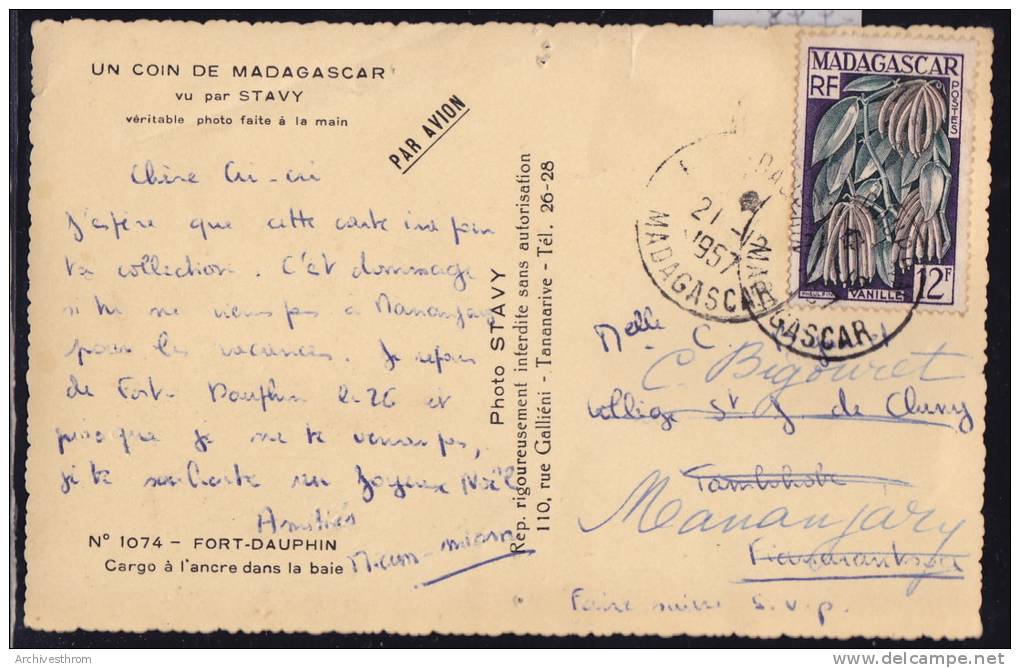 UN COIN DE MADAGASCAR
vu par STAVY
véritable photo faite à la main
PAR AVION
Chère Cri-cri
J'espère que cette carte ira pour
ta collection. C'est dommage
si tu ne viens pas à Mananjary
pour les vacances. Je repars
de Fort-Dauphin le 26 et
puisque je ne te verrai pas,
je te souhaite un Joyeux Noël
Amitiés
Miam-miam
N° 1074 – FORT-DAUPHIN
Cargo à l'ancre dans la baie
Photo STAVY
Rep. rigoureusement interdite sans autorisation
110, rue Galliéni - Tananarive - Tél. 26-28
MADAGASCAR
RF
POSTES
VANILLE
12F
21-12
1957
MADAGASCAR
GASCAR
Melle C.
C. Bigouret
Collège St J. de Cluny
Tambohobe
Mananjary
Fianarantsoa
Faire suivre S.V.P.
Archivesthrom
delcampe.net